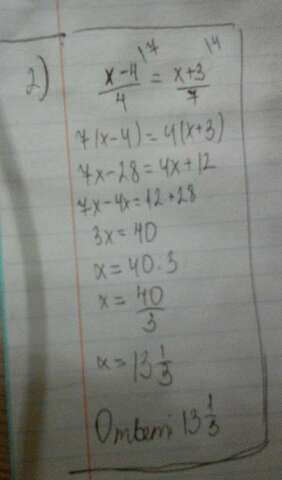 2)
|7 |4
x-4/4 = x+3/7
7(x-4)=4(x+3)
7x-28=4x+12
7x-4x=12+28
3x=40
x=40.3
x=40/3
x=13 1/3
13 1/3